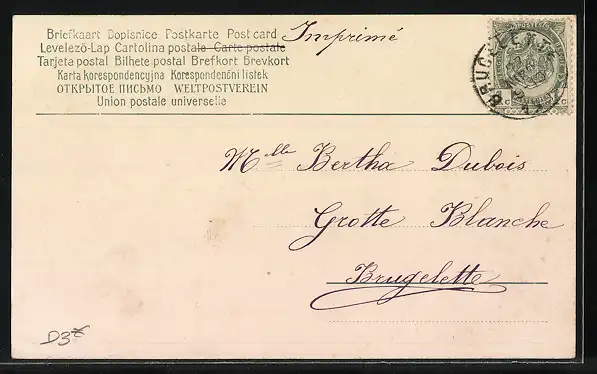 Briefkaart Dopisnice Postkarte Post card
Levelező-Lap Cartolina postale Carte postale
Tarjeta postal Bilhete postal Brefkort Brevkort
Karta korespondencyjna Korespondenční listek
ОТКРЫТОЕ ПИСЬМО WELTPOSTVEREIN
Union postale universelle
Imprimé
Mlle Bertha Dubois
Grotte Blanche
Brugelette